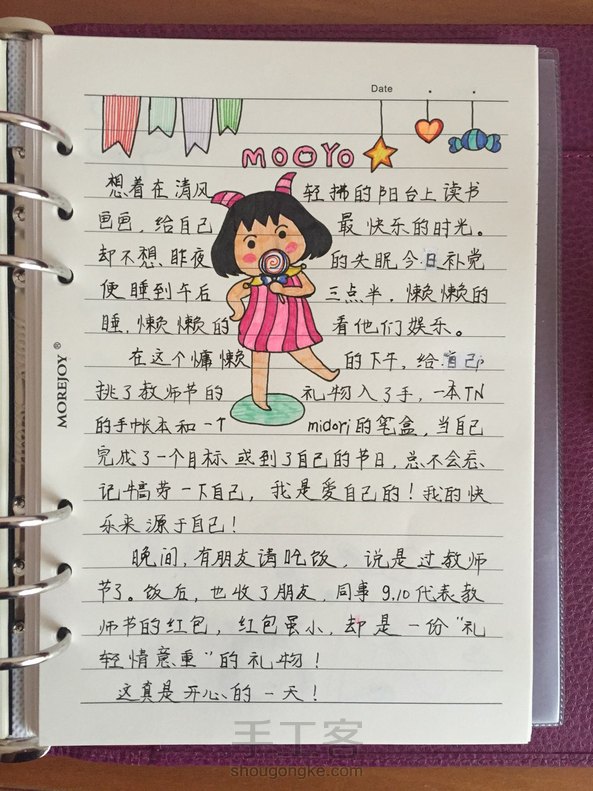 Date
MOOYO
想着在清风 轻拂的阳台上读书
画画，给自己 最快乐的时光。
却不想，昨夜 的失眠今日补觉
便睡到午后 三点半，懒懒的
睡，懒懒的 看他们娱乐。
在这个慵懒 的下午，给自己
挑了教师节的 礼物入了手，一本TN
的手帐本和一个 midori的笔盒，当自己
完成了一个目标或到了自己的节日，总不会忘
记犒劳一下自己，我是爱自己的！我的快
乐来源于自己！
晚间，有朋友请吃饭，说是过教师
节了。饭后，也收了朋友，同事9.10代表教
师节的红包，红包虽小，却是一份“礼
轻情意重”的礼物！
这真是开心的一天！
MOREJOY®
手工客
shougongke.com